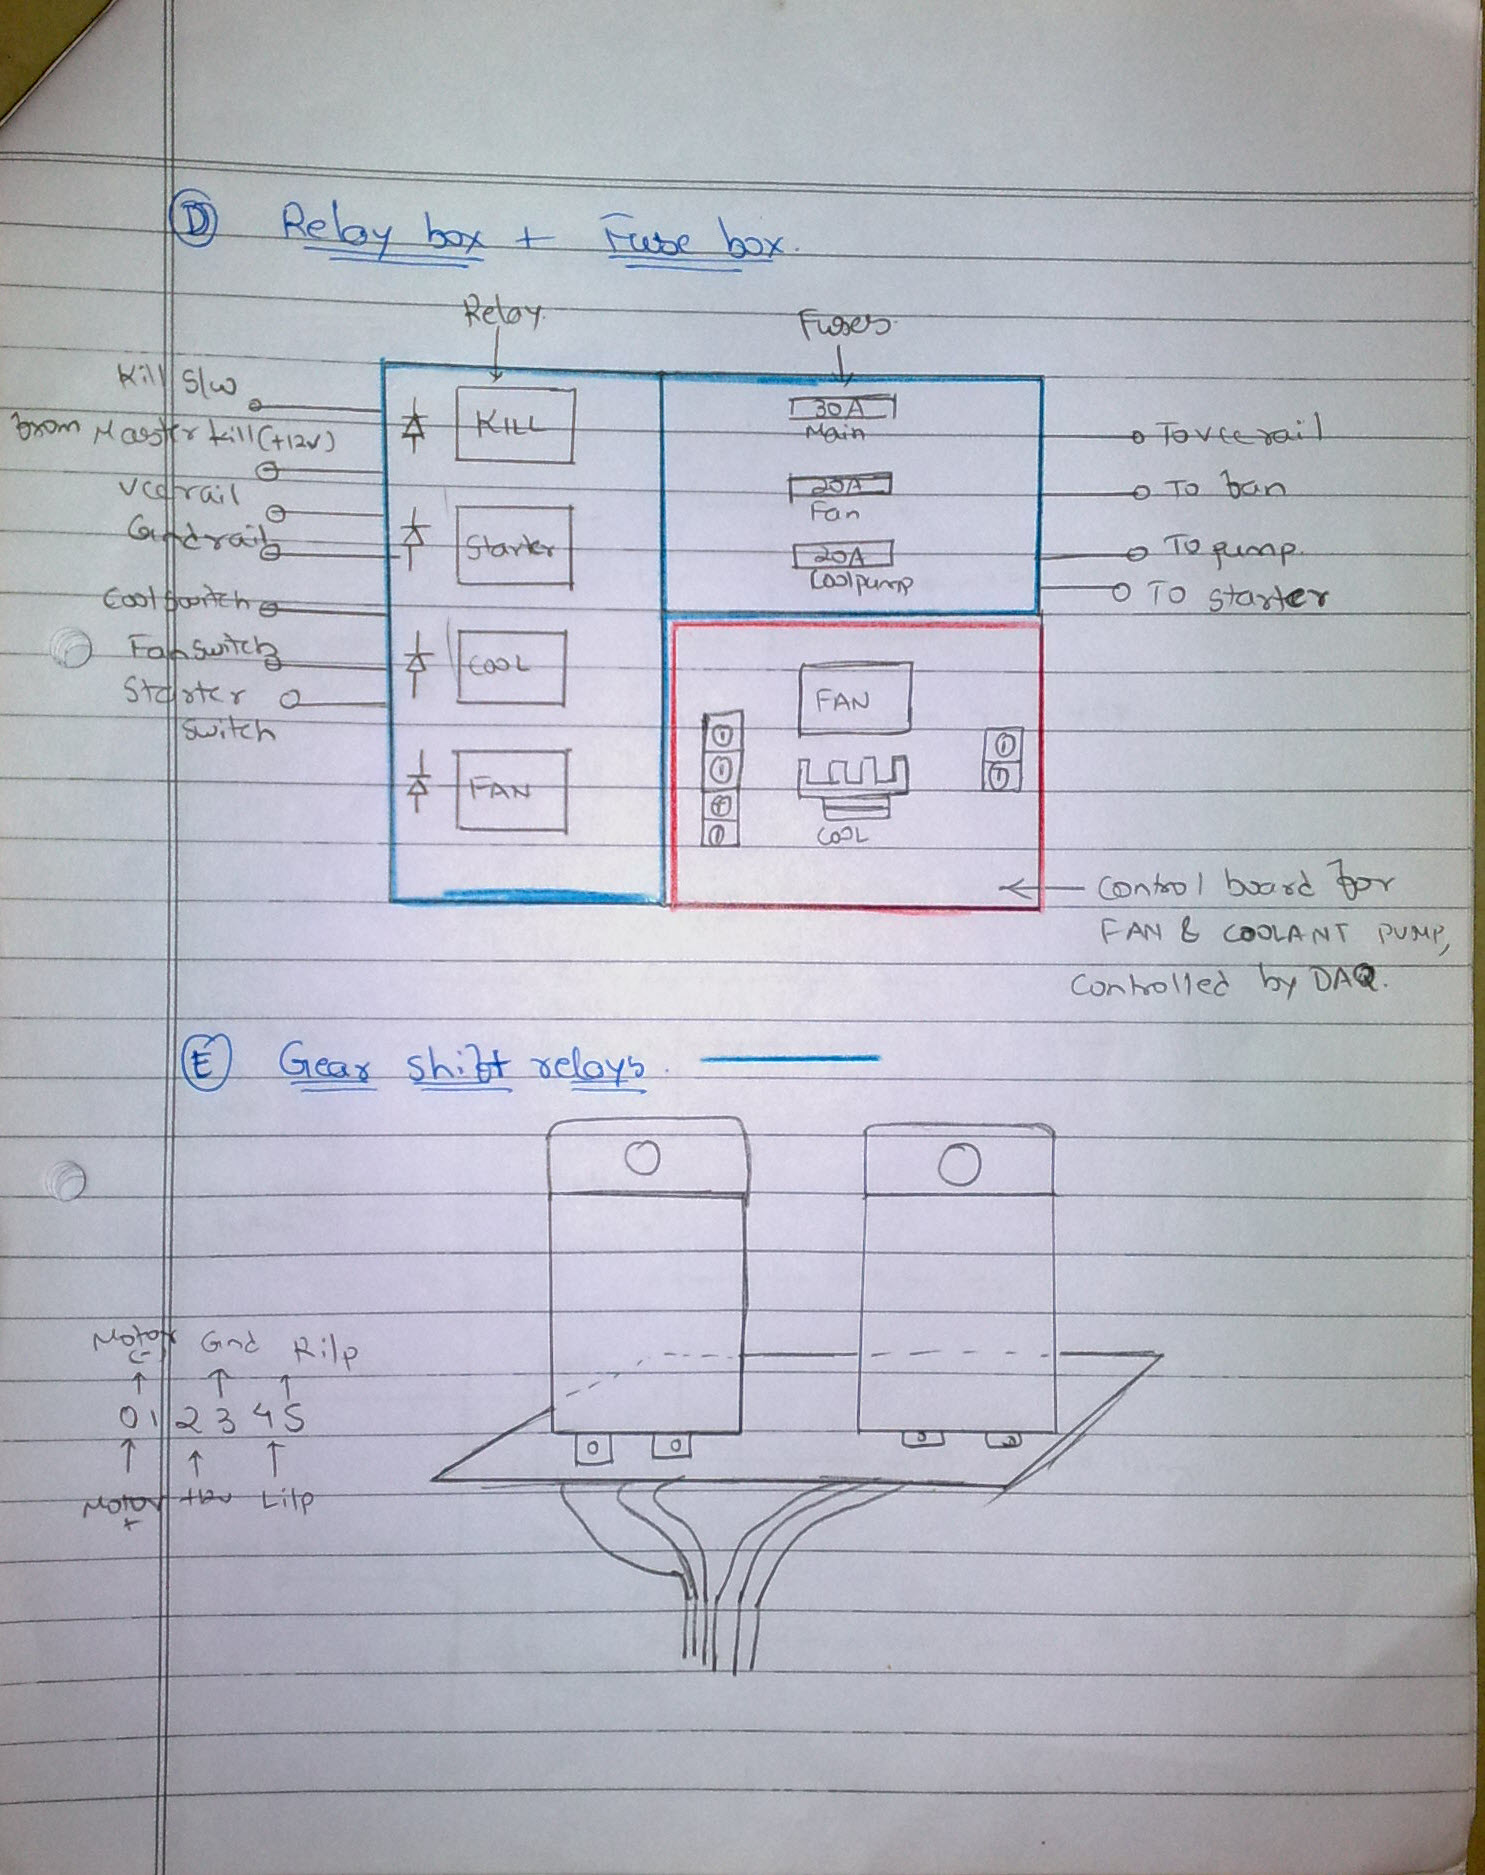 D Relay box + Fuse box.
Relay
Fuses
Kill S/w
from Master kill (+12v)
Vcc rail
Gnd rail
Cool switch
Fan switch
Starter
switch
KILL
Starter
COOL
FAN
30A
Main
20A
Fan
20A
Coolpump
To vcc rail
To fan
To pump
To starter
FAN
COOL
Control board for
FAN & COOLANT PUMP,
Controlled by DAQ.
E Gear shift relays.
Motor Gnd Ri/p
(-)
0 1 2 3 4 5
Motor +12v Li/p
+